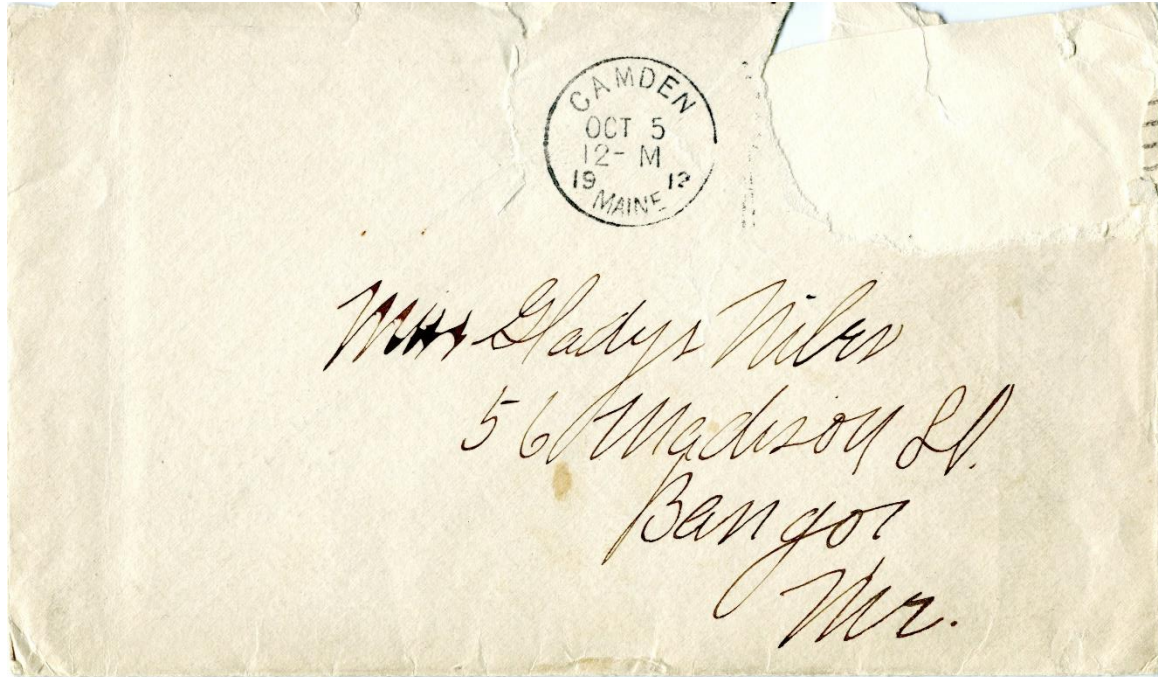 CAMDEN
OCT 5
12- M
19 12
MAINE
Miss Gladys Niles
56 Madison St.
Bangor
Me.